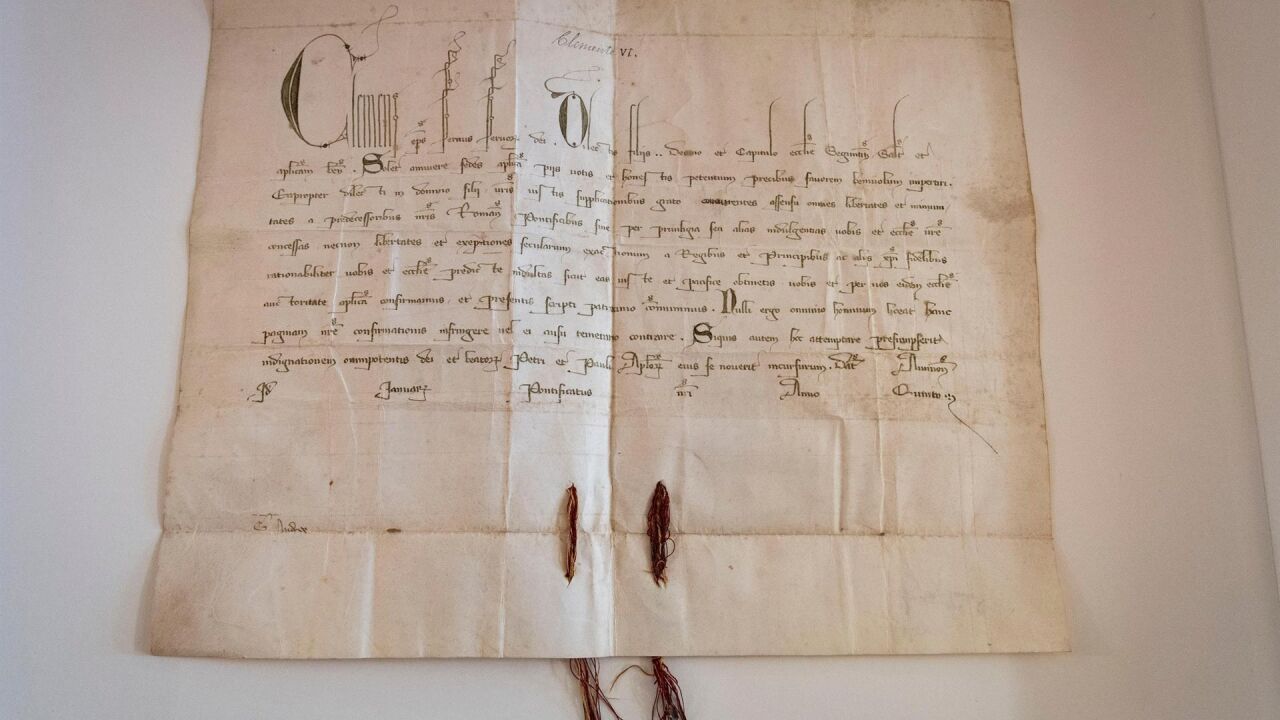 Clemente VI.
Clemens eps servus servorꝝ dei. Dilectis filiis.. Decano et Capitulo ecclie Seguntin Salt et
aplicam ben. Solet annuere sedes aplica piis votis et honestis petentium precibus favorem benivolum impertiri.
Eapropter dilecti in domino filii vris iustis supplicationibus grato concurrentes assensu omnes libertates et inmuni
tates a predecessoribus nris Roman Pontificibus sive per privilegia seu alias indulgentias vobis et ecclie vre
concessas necnon libertates et exeptiones secularium exactionum a Regibus et Principibus ac aliis xpi fidelibus
rationabiliter vobis et ecclie predicte indultas sicut eas iuste et pacifice obtinetis vobis et per vos eidem ecclie
auctoritate aplica confirmamus et presentis scripti patrocinio communimus. Nulli ergo omnino hominum liceat hanc
paginam nre confirmationis infringere vel ei ausu temerario contraire. Siquis autem hoc attemptare presumpserit
indignationem omnipotentis dei et beatorꝝ Petri et Pauli Aplorꝝ eius se noverit incursurum. Dat Avinion
Id Januarꝝ Pontificatus nri Anno